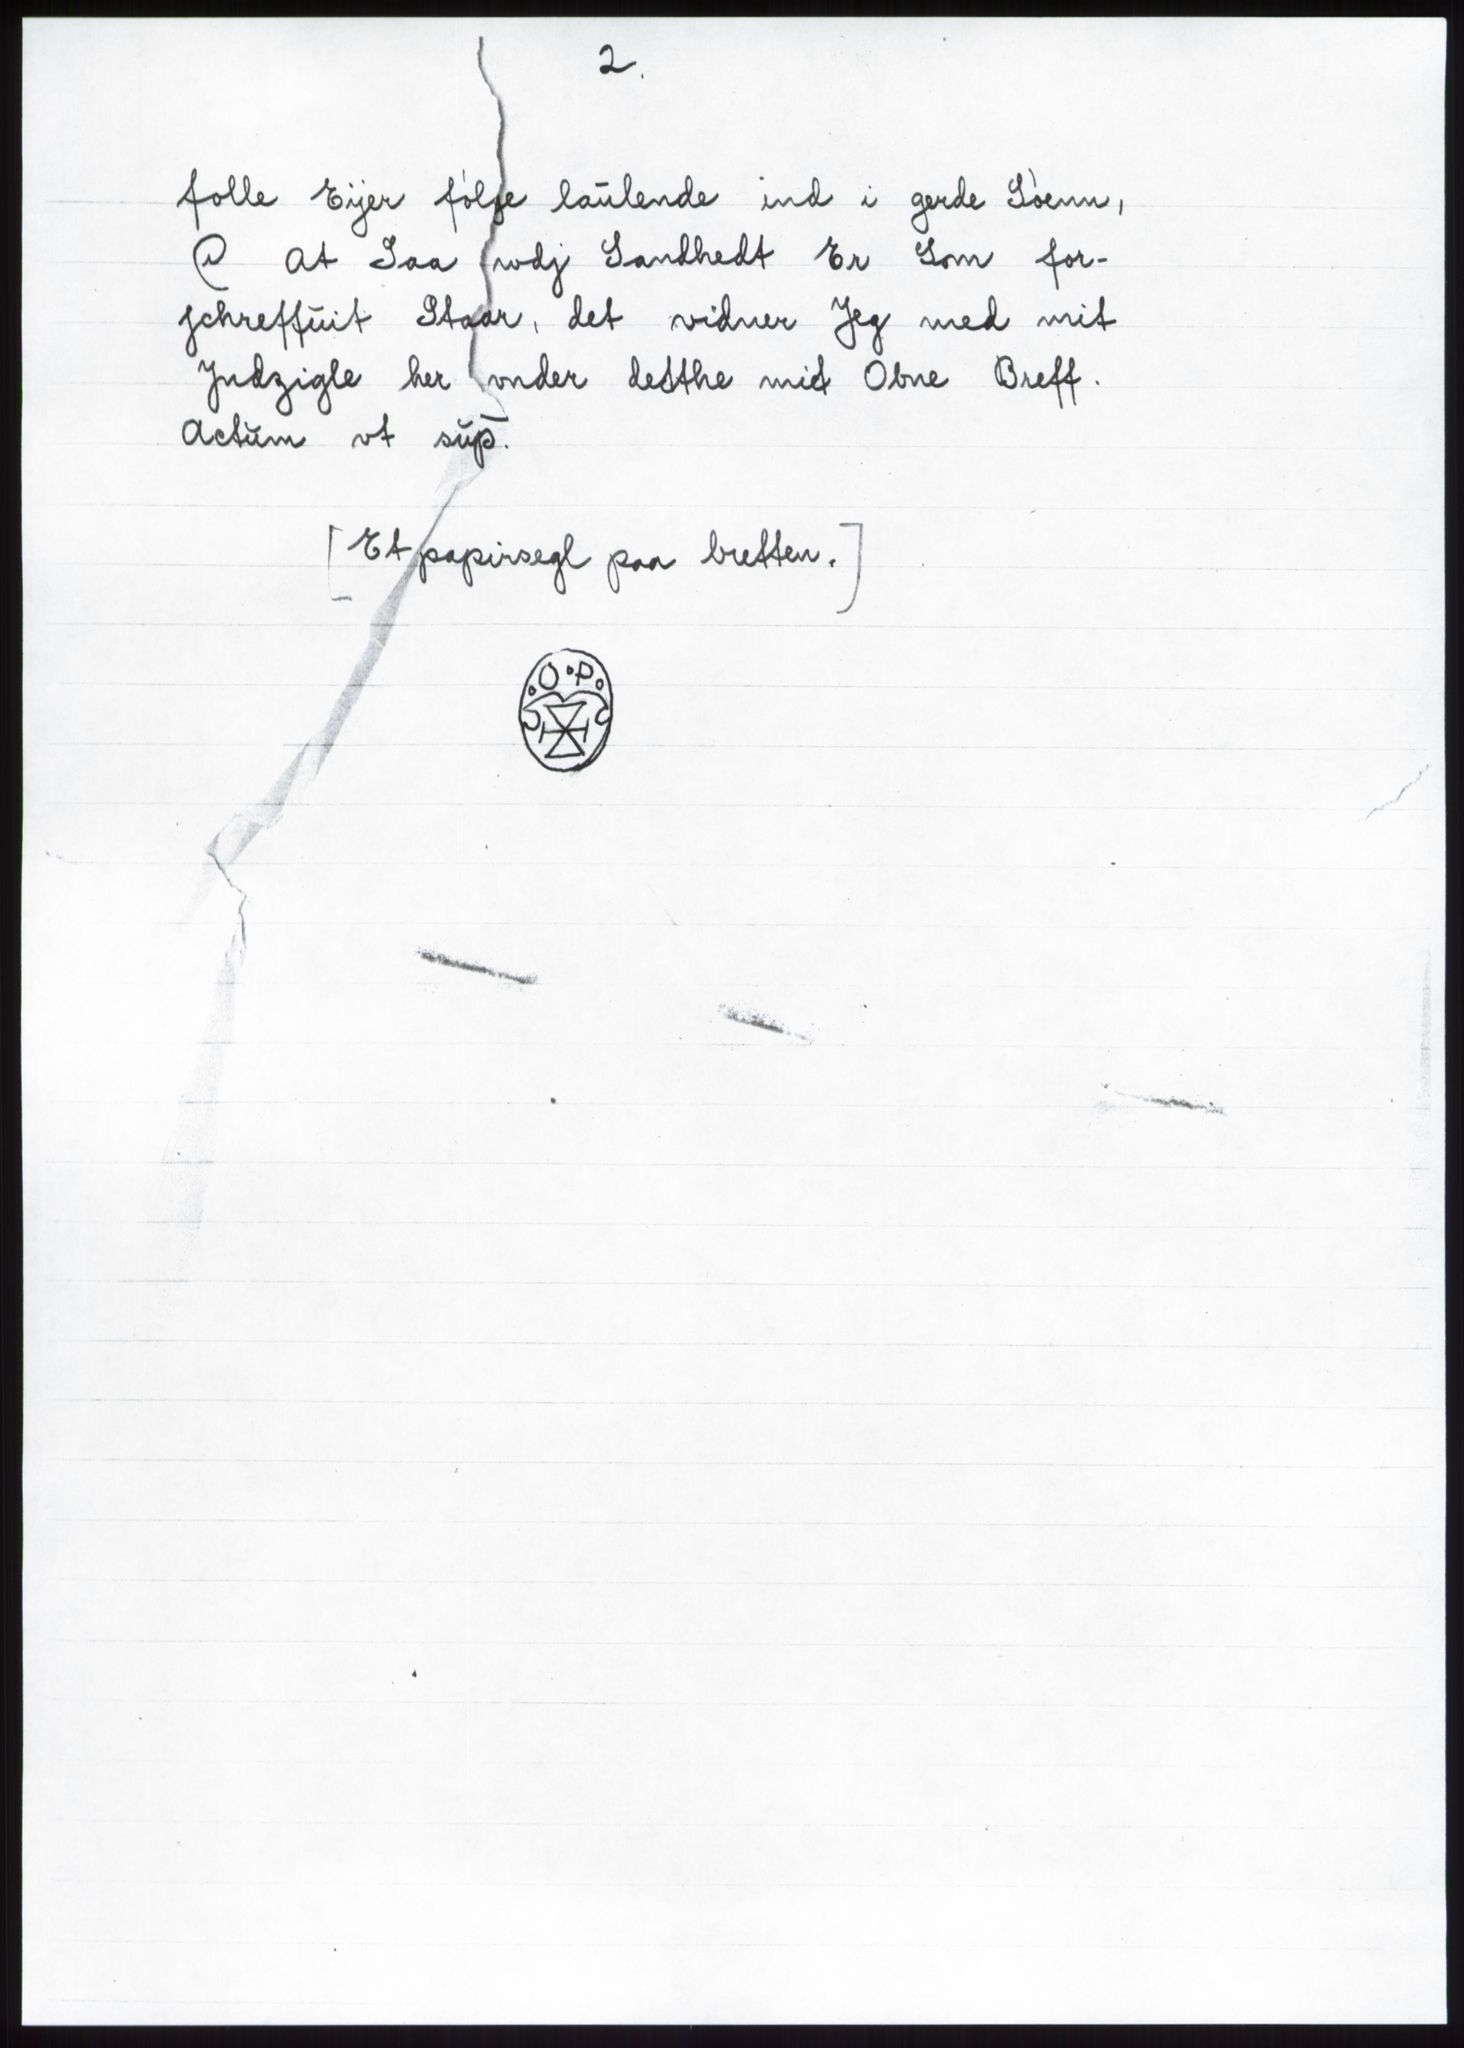 2.
folle Eijer følge laŭlende ind i gerde Søenn,
At Saa wdj Sandhedt Er Som for-
schreffŭit Staar, det vidner Jeg med mit
Jndzigle her vnder detthe mit Obne Breff.
Actŭm vt sŭp̄.
[Et papirsegl paa bretten.]
O P